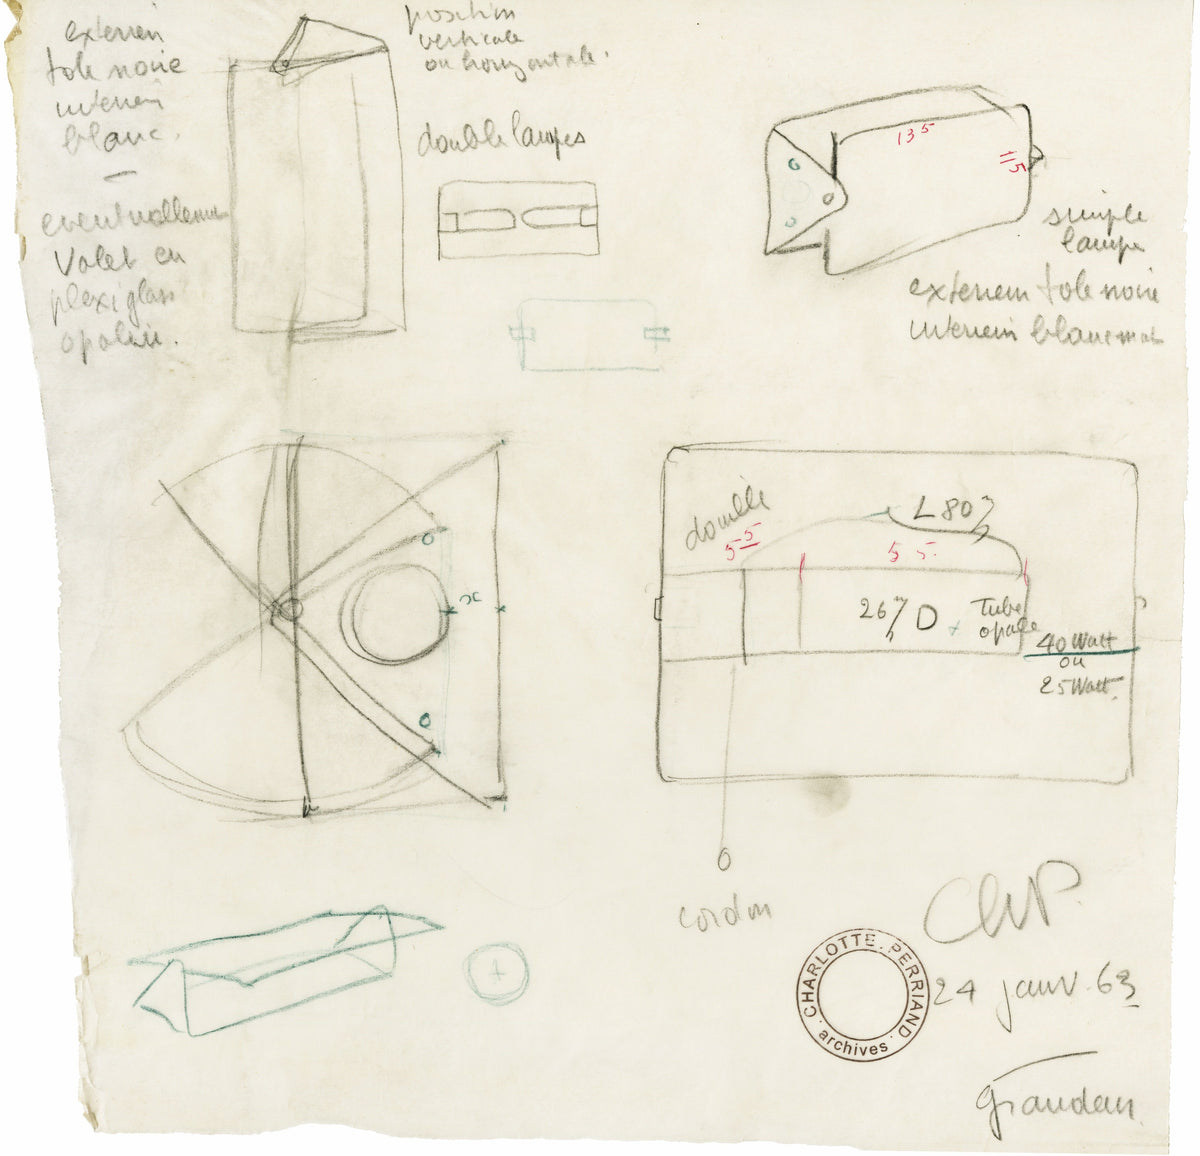 exterieur
tole noire
interieur
blanc.
eventuellement
Volet en
plexiglass
opalin.
position
verticale
ou horizontale.
double lampes
135
115
simple
lampe
exterieur tole noire
interieur blanc mat
x
douille
55
L 80
55
26 D
Tube
opale
40 Watt
ou
25 Watt.
cordon
ChP
CHARLOTTE. PERRIAND.
archives
24 janv. 63
grandeur